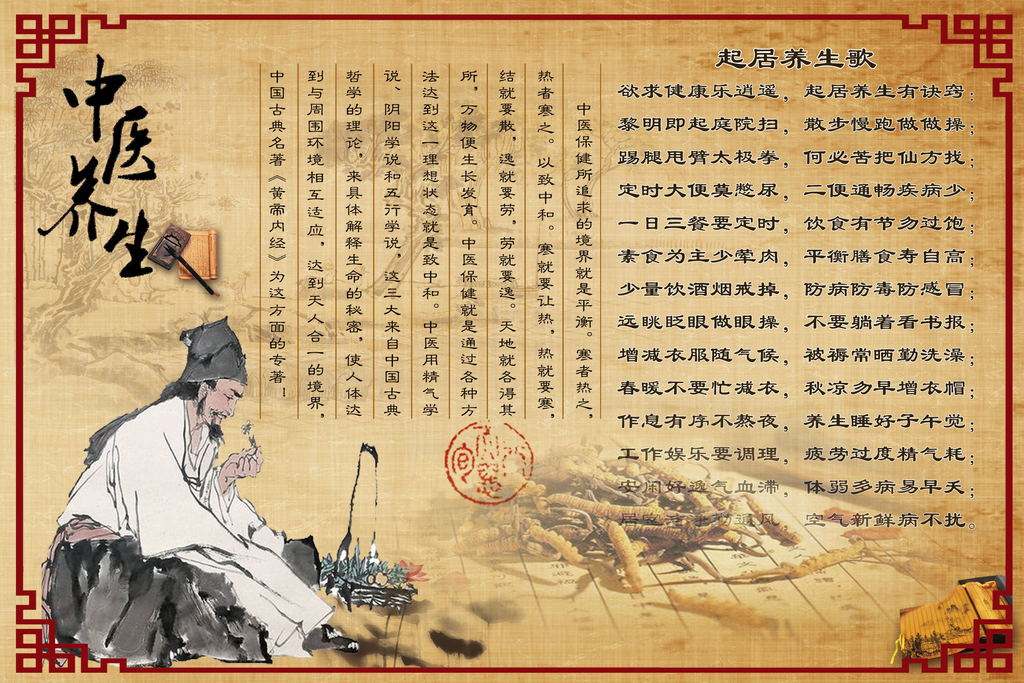 中医养生
起居养生歌
欲求健康乐逍遥， 起居养生有诀窍；
黎明即起庭院扫， 散步慢跑做做操；
踢腿甩臂太极拳， 何必苦把仙方找；
定时大便莫憋尿， 二便通畅疾病少；
一日三餐要定时， 饮食有节勿过饱；
素食为主少荤肉， 平衡膳食寿自高；
少量饮酒烟戒掉， 防病防毒防感冒；
远眺眨眼做眼操， 不要躺着看书报；
增减衣服随气候， 被褥常晒勤洗澡；
春暖不要忙减衣， 秋凉勿早增衣帽；
作息有序不熬夜， 养生睡好子午觉；
工作娱乐要调理， 疲劳过度精气耗；
安闲好逸气血滞， 体弱多病易早夭；
通风， 空气新鲜病不扰。
中医保健所追求的境界就是平衡。寒者热之，
热者寒之。以致中和。寒就要让热，热就要寒，
结就要散，逸就要劳，劳就要逸。天地就各得其
所，万物便生长发育。中医保健就是通过各种方
法达到这一理想状态就是致中和。中医用精气学
说、阴阳学说和五行学说，这三大来自中国古典
哲学的理论，来具体解释生命的秘密，使人体达
到与周围环境相互适应，达到天人合一的境界，
中国古典名著《黄帝内经》为这方面的专著！